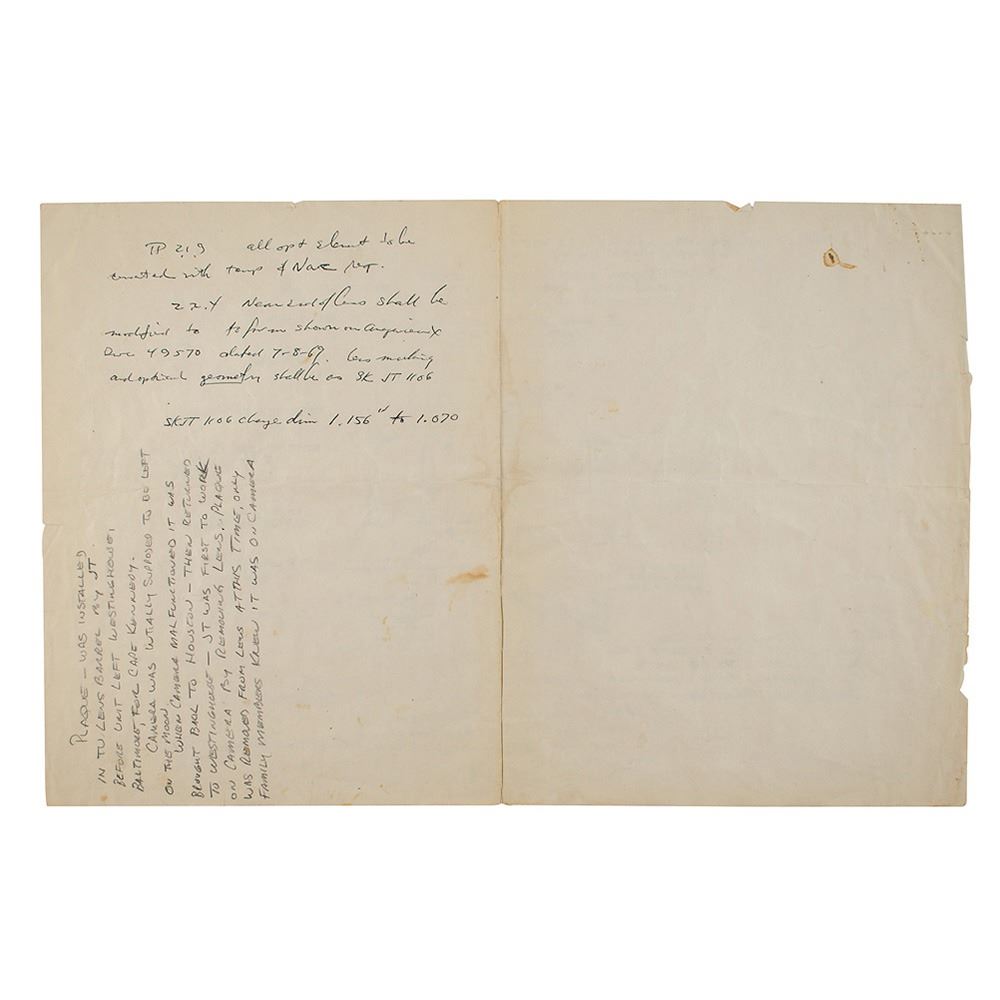 TP 2.1.9 all opt element to be
with temp of
2.2.4 Near end of lens shall be
modified to form shown on Angenieux
49570 dated 7-8-69. lens marking
and optical geometry shall be as SK JT 1106
SKJT 1106 change dim 1.156" to 1.070
PLAQUE — WAS INSTALLED
IN TV LENS BARREL BY JT
BEFORE UNIT LEFT WESTINGHOUSE,
BALTIMORE, FOR CAPE KENNEDY.
CAMERA WAS INTIALLY SUPPOSED TO BE LEFT
ON THE MOON
WHEN CAMERA MALFUNCTIONED IT WAS
BROUGHT BACK TO HOUSTON — THEN RETURNED
TO WESTINGHOUSE — JT WAS FIRST TO WORK
ON CAMERA BY REMOVING LENS. PLAQUE
WAS REMOVED FROM LENS AT THIS TIME, ONLY
FAMILY MEMBERS KNEW IT WAS ON CAMERA